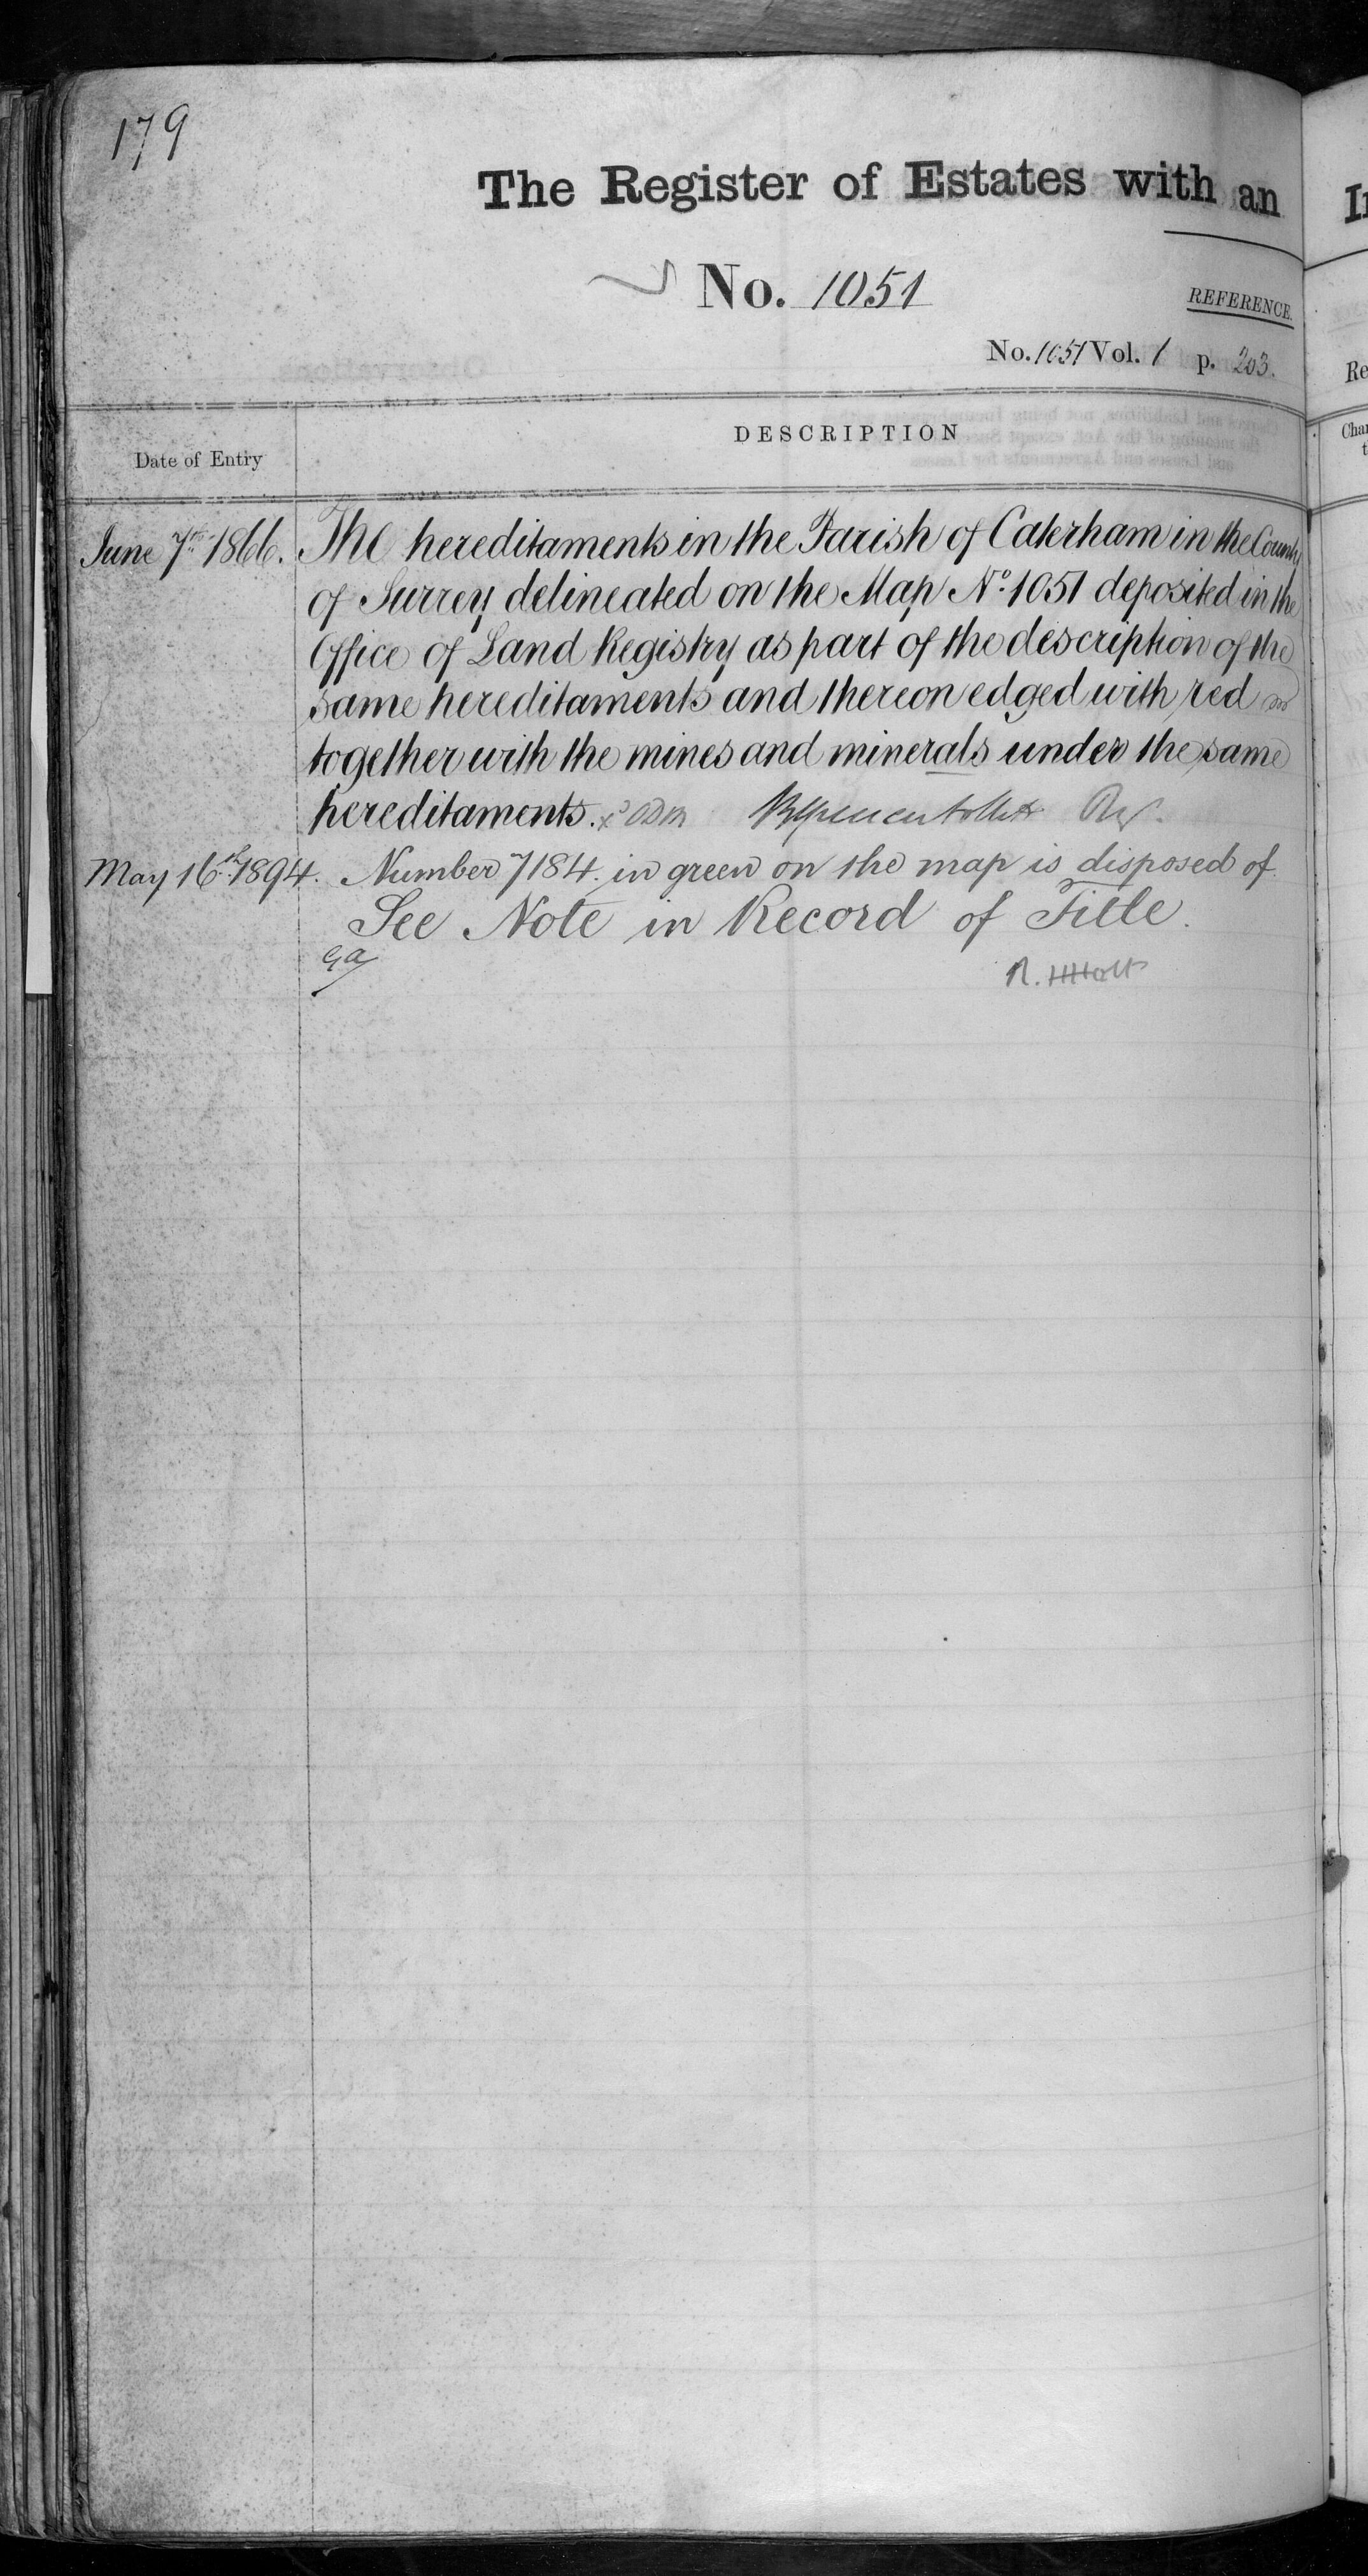 179
The Register of Estates with an
No. 1051
REFERENCE.
No. 1051 Vol. 1 p. 203.
Date of Entry
DESCRIPTION
June 7th 1866. The hereditaments in the Parish of Caterham in the County
of Surrey delineated on the Map No. 1051 deposited in the
Office of Land Registry as part of the description of the
same hereditaments and thereon edged with red
together with the mines and minerals under the same
hereditaments.
May 16th 1894. Number 7184. in green on the map is disposed of.
See Note in Record of Title.
R. Holt
In
Re
Char
t